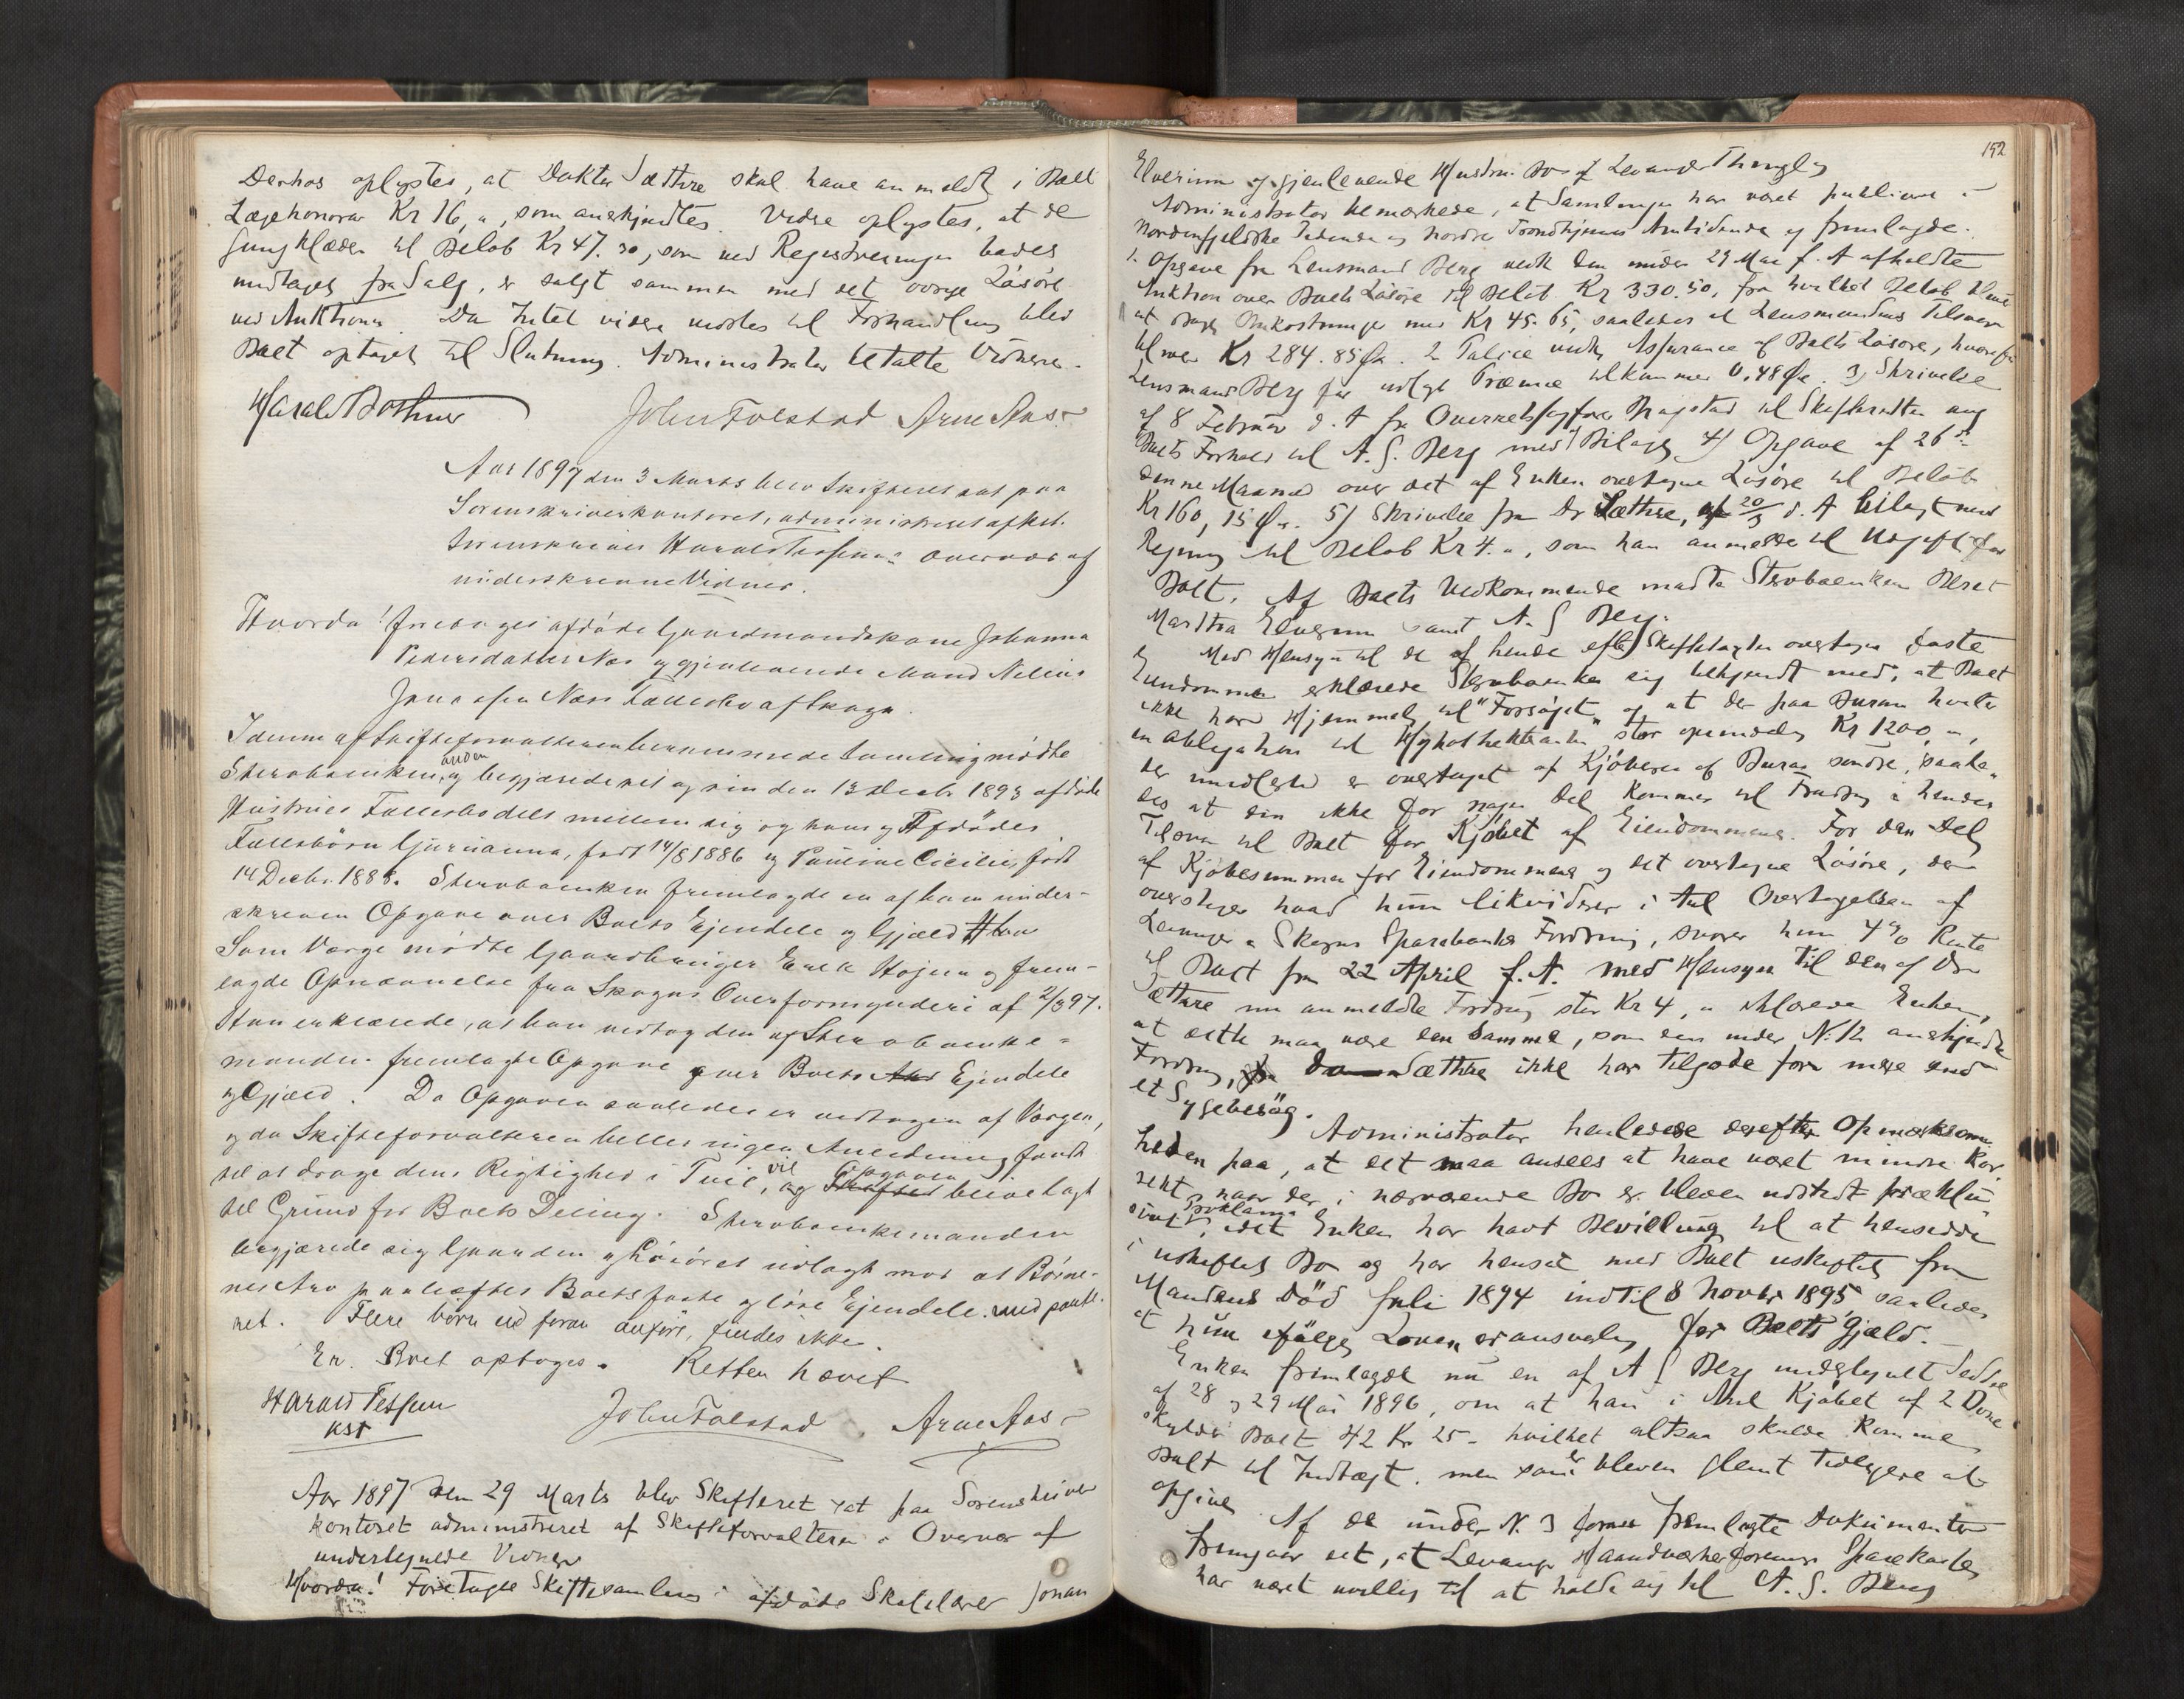 Derhos oplystes, at Doktor Sæthre skal have anmeldt i Boet
Lægehonorar Kr 16, „, som anerkjendtes. Videre oplystes, at de
Gangklæder til Beløb Kr 47.30, som ved Registreringen bades
undtaget fra Salg, er solgt sammen med det øvrige Løsøre
ved Auktionen. Da Intet videre vides til Forhandling blev
Boet optaget til Slutning. Administrator betalte Vidnerne.
Harald Bothner John Folstad Arne Aas
Aar 1897 den 3 Marts blev Skifteret sat paa
Sorenskriverkontoret, administreret af kst.
Sorenskriver Harald Tessem i Overvær af
underskrevne Vidner.
Hvorda! foretoges afdøde Gaardmandskone Johanna
Pedersdatter Næs og gjenlevende Mand Nelius
Næss Fællesbo af Skogn.
I denne af Skifteforvalteren berammede Samling mødte
Sterboenken, og begjærede sit og sin den 13 Decbr. 1893 afdøde
anden
Hustrues Fællesbo delt mellem sig og hans og Afdødes
Fællesbørn Gurianna, født 14/8 1886 og Pauline Cicilie, født
14 Decbr. 1888. Sterboenken fremlagde en af ham under-
skreven Opgave over Boets Ejendele og Gjæld
Som Værge mødte Gaardbruger Erik Hojem og frem-
lagde Opnævnelse fra Skogns Overformynderi af 2/3 97.
Han erklærede, at han vedtog den af Sterboenke-
manden fremlagte Opgave over Boets Ejendele
og Gjæld. Da Opgaven saaledes er vedtagen af Værgen,
og da Skifteforvalteren heller ingen Anledning fandt
til at drage dens Rigtighed i Tvil, vil Opgaven blive lagt
til Grund for Boets Deling. Sterboenkemanden
begjærede sig Gaarden og Løsøret udlagt mod at Børne-
nes Arv paahæftes Boets faste og løse Ejendele med pante-
ret. Flere børn end foran anført, findes ikke.
Er. Boet optoges. Retten hævet
Harald Tessem John Folstad Arne Aas
kst
Aar 1897 den 29 Marts blev Skifteret sat paa Sorenskriver
kontoret administreret af Skifteforvalteren i Overvær af
undertegnede Vidner
Hvorda! Foretoges Skiftesamling i afdøde Skolelærer Johan
152
Elverum og gjenlevende Hustru Bo af Levanger
Administrator bemærkede, at Samlingen har været publiceret i
Nordenfjeldske Tidende og Nordre Trondhjems Amtstidende og fremlagde.
1. Opgave fra Lensmand Berg vedk den under 29 Mai f. A afholdte
Auktion over Boets Løsøre til Beløb Kr 330.50, fra hvilket Beløb bliver
at drage Omkostninger med Kr 45.65, saaledes at Lensmandens Tilsvar
bliver Kr 284.85 Øre. 2 Police vedk. Assurance af Boets Løsøre, hvorefter
Lensmand Berg for udlagt Præmie tilkommer 0,48 Øre. 3) Skrivelse
af 8 Februar d. A fra Overretssagfører Bragstad til Skifteretten ang
Boets Forhold til A. G. Berg med 1 Bilag. 4) Opgave af 26 d.
denne Maaned over det af Enken overtagne Løsøre til Beløb
Kr 160, 15 Øre. 5) Skrivelse fra Dr Sæthre, af 20/3 d. A bilagt med
Regning til Beløb Kr 4. „, som han anmeldte til Udgift for
Boet. Af Boets Vedkommende mødte Sterboenken Beret
Martha Elverum samt A. G Berg.
Med Hensyn til de af hende efter Skiftetaxten overtagne faste
Eiendomme erklærede Sterboenken sig bekjendt med, at Boet
ikke har Hjemmel til „Forsøget“ og at der paa Buran hviler
en Obligation til Hypothekbanken stor oprindelig Kr 1200, „,
der imidlertid er overtaget af Kjøberen af Buran søndre, saale„
des at den ikke for nogen Del kommer til Fradrag i hendes
Tilsvar til Boet for Kjøbet af Eiendommene. For den Del
af Kjøbesummen for Eiendommene og det overtagne Løsøre, der
overstiger hvad hun likviderer i Anl Overtagelsen af
Levanger & Skogns Sparebanks Fordring, svarer hun 4% Rente
til Boet fra 22 April f. A. Med Hensyn til den af Dr
Sæthre nu anmeldte Fordring stor Kr 4, „ erklærede Enken,
at dette maa være den samme, som den under N: 12 anerkjendte
Fordring, da Sæthre ikke har tilgode for mere end
et Sygebesøg.
Administrator henledede derefter Opmærksom„
heden paa, at det maa ansees at have været mindre kor„
rekt, naar der i nærværende Bo er bleven udstedt præklu„
sivt Proklama, idet Enken har havt Bevilling til at hensidde
i uskiftet Bo og har hensiddet med Boet uskiftet fra
Mandens Død Juli 1894 indtil 8 Novbr 1895, saaledes
at hun ifølge Loven er ansvarlig for Boets Gjæld.
Enken fremlagde nu en af A G Berg undertegnet Seddel
af 28 og 29 Mai 1896, om at han i Anl Kjøbet af 2
skylder Boet 42 Kr 25 - hvilket altsaa skulde komme
Boet til Indtægt, men som er bleven glemt tidligere at
opgive
Af de under N. 3 fremlagte Dokumenter
fremgaar det, at Levanger Haandværkerforenings Sparekasse
har været uvillig til at holde sig til A. G. Berg